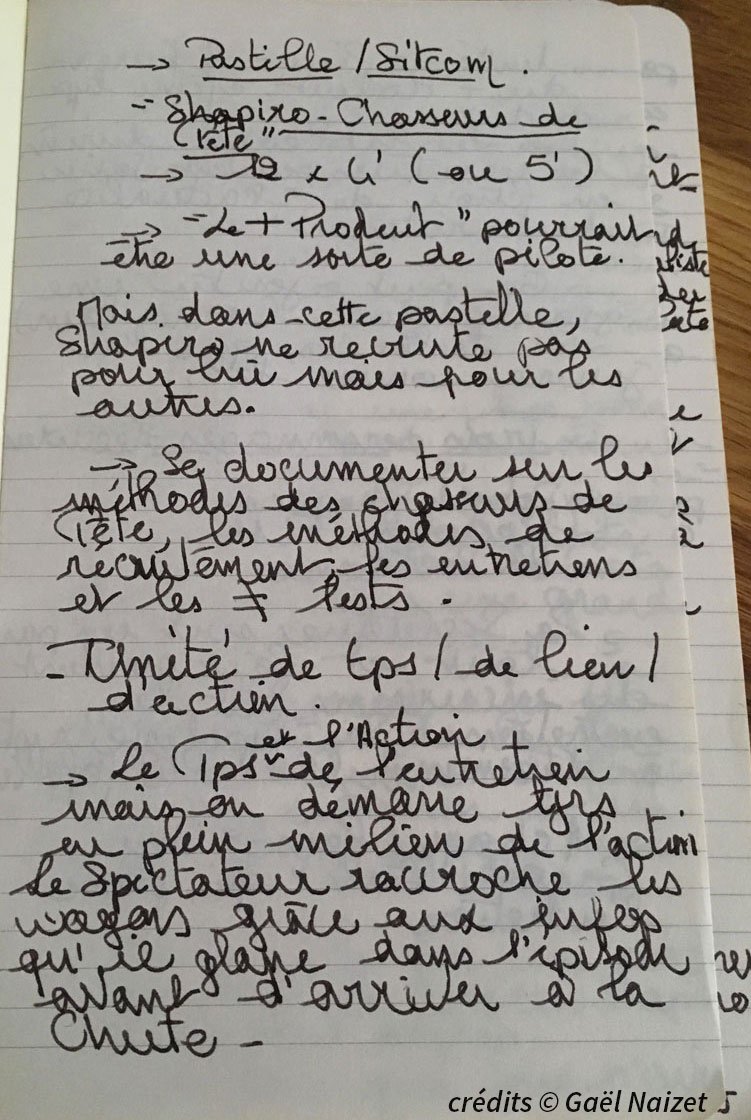 → Pastille / Sitcom.
- "Shapiro - Chasseurs de
Tête"
→ 12 x 4' (ou 5')
→ "Le + Produit" pourrait
être une sorte de pilote.
Mais dans cette pastille,
Shapiro ne recrute pas
pour lui mais pour les
autres.
→ Se documenter sur les
méthodes des chasseurs de
Tête, les méthodes de
recrutement, les entretiens
et les ≠ tests.
- Unité de tps / de lieu /
d'action.
→ Le Tps et l'Action de l'entretien
mais on démarre tjrs
en plein milieu de l'action
Le Spectateur raccroche les
wagons grâce aux infos
qu'il glane dans l'épisode
avant d'arriver à la
Chute -
crédits © Gaël Naizet